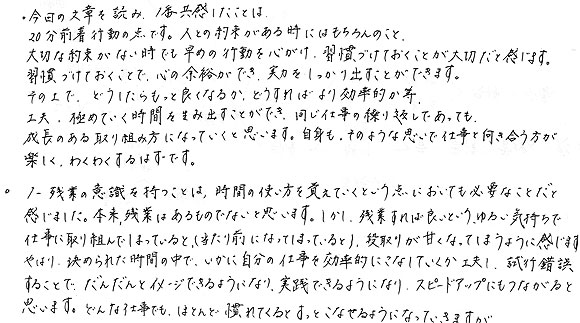 ・今回の文章を読み、1番共感したことは、
20分前着行動の点です。人との約束がある時にはもちろんのこと、
大切な約束がない時でも早めの行動を心がけ、習慣づけておくことが大切だと感じます。
習慣づけておくことで、心の余裕ができ、実力をしっかり出すことができます。
その上で、どうしたらもっと良くなるか、どうすればより効率的か等、
工夫、極めていく時間を生み出すことができ、同じ仕事の繰り返しであっても、
成長のある取り組み方になっていくと思います。自身も、そのような思いで仕事と向き合う方が
楽しく、わくわくするはずです。
。ノー残業の意識を持つことは、時間の使い方を覚えていくという点においても必要なことだと
感じました。本来、残業はあるものでないと思います。しかし、残業すれば良いという、ゆるい気持ちで
仕事に取り組んでしまっていると、(当たり前になってしまっていると)、段取りが甘くなってしまうように感じます。
やはり、決められた時間の中で、いかに自分の仕事を効率的にこなしていくか工夫し、試行錯誤
することで、だんだんとイメージできるようになり、実践できるようになり、スピードアップにもつながると
思います。どんな仕事でも、ほとんど慣れてくるとすっとこなせるようになっていきますが